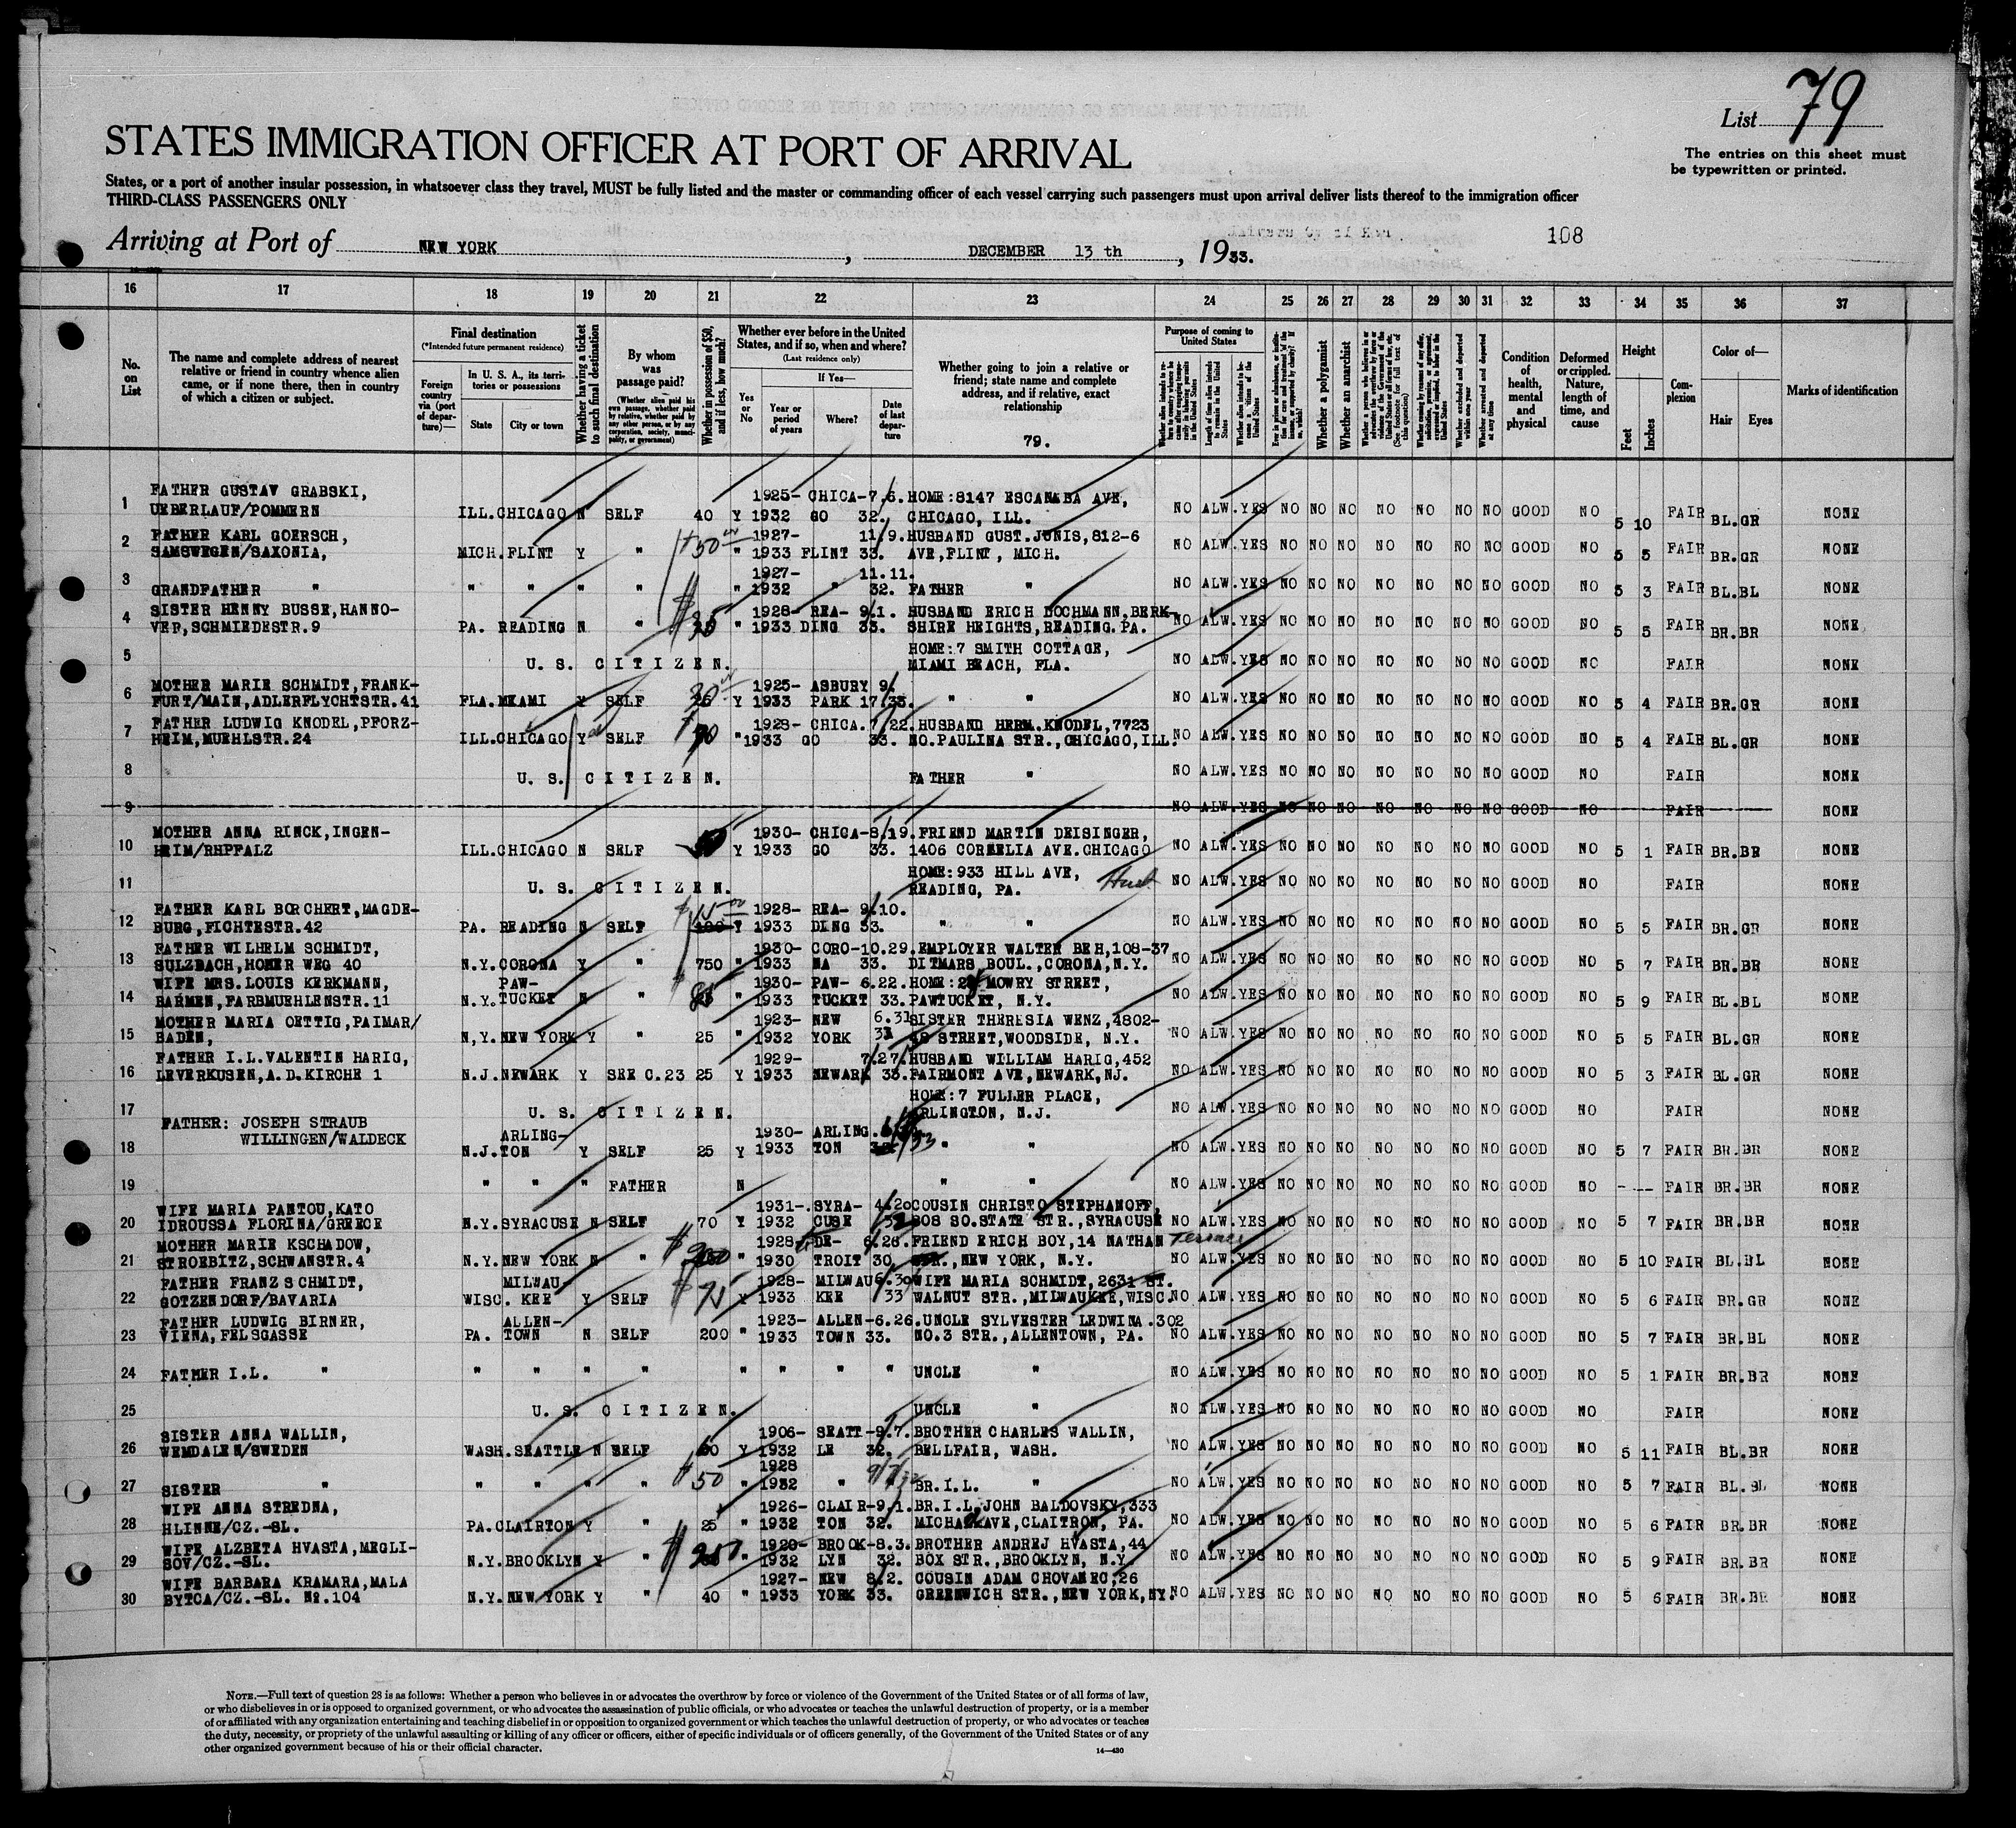 List 79
The entries on this sheet must
be typewritten or printed.
STATES IMMIGRATION OFFICER AT PORT OF ARRIVAL
States, or a port of another insular possession, in whatsoever class they travel, MUST be fully listed and the master or commanding officer of each vessel carrying such passengers must upon arrival deliver lists thereof to the immigration officer
THIRD-CLASS PASSENGERS ONLY
Arriving at Port of NEW YORK, DECEMBER 13 th, 1933.
108
16 17 18 19 20 21 22 23 24 25 26 27 28 29 30 31 32 33 34 35 36 37
No. on List
The name and complete address of nearest relative or friend in country whence alien came, or if none there, then in country of which a citizen or subject.
Final destination
(*Intended future permanent residence)
Foreign country via (port of departure)—
In U. S. A., its territories or possessions
State
City or town
Whether having a ticket to such final destination
By whom was passage paid?
(Whether alien paid his own passage, whether paid by relative, whether paid by any other person, or by any corporation, society, municipality, or government)
Whether in possession of $50, and if less, how much?
Whether ever before in the United States, and if so, when and where?
(Last residence only)
Yes or No
If Yes—
Year or period of years
Where?
Date of last departure
Whether going to join a relative or friend; state name and complete address, and if relative, exact relationship
79.
Purpose of coming to United States
Length of time alien intends to remain in the United States
Whether a polygamist
Whether an anarchist
(See footnote for full text of this question)
Whether excluded and deported within one year
Whether arrested and deported at any time
Condition of health, mental and physical
Deformed or crippled. Nature, length of time, and cause
Height
Feet
Inches
Complexion
Color of—
Hair
Eyes
Marks of identification
1 FATHER GUSTAV GRABSKI, 1925- CHICA-7.6. HOME:8147 ESCANABA AVE,
UEBERLAUF/POMMERN ILL.CHICAGO N SELF 40 Y 1932 GO 32. CHICAGO, ILL. NO ALW.YES NO NO NO NO NO NO NO GOOD NO 5 10 FAIR BL.GR NONE
2 FATHER KARL GOERSCH, 1927- 11/9. HUSBAND GUST.JUNIS,812-6
SAMSWEGEN/SAXONIA, MICH.FLINT Y " 50 " 1933 FLINT 33. AVE,FLINT, MICH. NO ALW.YES NO NO NO NO NO NO NO GOOD NO 5 5 FAIR BR.GR NONE
3 1927- 11.11.
GRANDFATHER " " " " " " 1932 " 32. FATHER " NO ALW.YES NO NO NO NO NO NO NO GOOD NO 5 3 FAIR BL.BL NONE
4 SISTER HENNY BUSSE,HANNO- 1928- REA- 9.1. HUSBAND ERICH BOCHMANN,BERK-
VER,SCHMIEDESTR.9 PA. READING N " $35 " 1933 DING 33. SHIRE HEIGHTS,READING.PA. NO ALW.YES NO NO NO NO NO NO NO GOOD NO 5 5 FAIR BR.BR NONE
5 HOME:7 SMITH COTTAGE,
U. S. CITIZEN. MIAMI BEACH, FLA. NO ALW.YES NO NO NO NO NO NO NO GOOD NO FAIR NONE
6 MOTHER MARIE SCHMIDT,FRANK- 1925- ASBURY 9.
FURT/MAIN,ADLERFLYCHTSTR.41 FLA.MIAMI Y SELF 30 Y 1933 PARK 17.33. " " NO ALW.YES NO NO NO NO NO NO NO GOOD NO 5 4 FAIR BR.GR NONE
7 FATHER LUDWIG KNODEL,PFORZ- 1928- CHICA.7/22. HUSBAND HERM.KNODEL,7723
HEIM,MUEHLSTR.24 ILL.CHICAGO Y SELF 70 " 1933 GO 33. NO.PAULINA STR.,CHICAGO,ILL. NO ALW.YES NO NO NO NO NO NO NO GOOD NO 5 4 FAIR BL.GR NONE
8 U. S. CITIZEN. FATHER " NO ALW.YES NO NO NO NO NO NO NO GOOD NO FAIR NONE
9 NO ALW.YES NO NO NO NO NO NO NO GOOD NO FAIR NONE
10 MOTHER ANNA RINCK,INGEN- 1930- CHICA-8.19. FRIEND MARTIN DEISINGER,
HEIM/RHPFALZ ILL.CHICAGO N SELF 50 Y 1933 GO 33. 1406 CORNELIA AVE.CHICAGO NO ALW.YES NO NO NO NO NO NO NO GOOD NO 5 1 FAIR BR.BR NONE
11 HOME:933 HILL AVE,
U. S. CITIZEN. READING, PA. NO ALW.YES NO NO NO NO NO NO NO GOOD NO FAIR NONE
12 FATHER KARL BORCHERT,MAGDE- 1928- REA- 9.10.
BURG,FICHTESTR.42 PA. READING N SELF Y 1933 DING 33. " " NO ALW.YES NO NO NO NO NO NO NO GOOD NO 5 5 FAIR BR.GR NONE
13 FATHER WILHELM SCHMIDT, 1930- CORO-10.29. EMPLOYER WALTER BEH,108-37
SULZBACH,HOMER WEG 40 N.Y.CORONA Y " 750 " 1933 NA 33. DITMARS BOUL.,CORONA,N.Y. NO ALW.YES NO NO NO NO NO NO NO GOOD NO 5 7 FAIR BR.BR NONE
14 WIFE MRS.LOUIS KERKMANN, PAW- 1930- PAW- 6.22. HOME: MOWRY STREET,
BARMEN,FARBMUEHLENSTR.11 N.Y.TUCKET N " " 1933 TUCKET 33. PAWTUCKET, N.Y. NO ALW.YES NO NO NO NO NO NO NO GOOD NO 5 9 FAIR BL.BL NONE
15 MOTHER MARIA OETTIG,PAIMAR/ 1923- NEW 6.31 SISTER THERESIA WENZ,4802-
BADEN, N,Y.NEW YORK Y " 25 " 1932 YORK STREET,WOODSIDE, N.Y. NO ALW.YES NO NO NO NO NO NO NO GOOD NO 5 5 FAIR BL.GR NONE
16 FATHER I.L.VALENTIN HARIG, 1929- 7.27. HUSBAND WILLIAM HARIG,452
LEVERKUSEN,A.D.KIRCHE 1 N.J.NEWARK Y SEE C.23 25 Y 1933 NEWARK 33. FAIRMONT AVE,NEWARK,NJ. NO ALW.YES NO NO NO NO NO NO NO GOOD NO 5 3 FAIR BL.GR NONE
17 HOME:7 FULLER PLACE,
U. S. CITIZEN. ARLINGTON, N.J. NO ALW.YES NO NO NO NO NO NO NO GOOD NO FAIR NONE
FATHER: JOSEPH STRAUB
18 WILLINGEN/WALDECK ARLING- 1930- ARLING.
N.J.TON Y SELF 25 Y 1933 TON " " NO ALW.YES NO NO NO NO NO NO NO GOOD NO 5 7 FAIR BR.BR NONE
19 " " " FATHER N " " NO ALW.YES NO NO NO NO NO NO NO GOOD NO - -- FAIR BR.BR NONE
20 WIFE MARIA PANTOU,KATO 1931-.SYRA- 4.20 COUSIN CHRISTO STEPHANOFF,
IDROUSSA FLORINA/GREECE N.Y.SYRACUSE N SELF 70 Y 1932 CUSE 32 808 SO.STATE STR.,SYRACUSE NO ALW.YES NO NO NO NO NO NO NO GOOD NO 5 7 FAIR BR.BR NONE
21 MOTHER MARIE KSCHADOW, 1928- DE- 6.26. FRIEND ERICH BOY,14 NATHAN Terrace
STROEBITZ,SCHWANSTR.4 N.Y.NEW YORK N " $ " 1930 TROIT 30. NEW YORK, N.Y. NO ALW.YES NO NO NO NO NO NO NO GOOD NO 5 10 FAIR BL.BL NONE
22 FATHER FRANZ SCHMIDT, MILWAU- 1928- MILWAU 6.30 WIFE MARIA SCHMIDT,2631 ST.
GOTZENDORF/BAVARIA WISC. KEE Y SELF $75 Y 1933 KEE 33 WALNUT STR.,MILWAUKEE,WISC. NO ALW.YES NO NO NO NO NO NO NO GOOD NO 5 6 FAIR BR.GR NONE
23 FATHER LUDWIG BIRNER, ALLEN- 1923- ALLEN-6.26. UNCLE SYLVESTER LEDWINA.302
VIENA,FELSGASSE PA. TOWN N SELF 200 " 1933 TOWN 33. NO.3 STR.,ALLENTOWN, PA. NO ALW.YES NO NO NO NO NO NO NO GOOD NO 5 7 FAIR BR.BL NONE
24 FATHER I.L. " " " " " " " " " UNCLE " NO ALW.YES NO NO NO NO NO NO NO GOOD NO 5 1 FAIR BR.BR NONE
25 U. S. CITIZEN. UNCLE " NO ALW.YES NO NO NO NO NO NO NO GOOD NO FAIR NONE
26 SISTER ANNA WALLIN, 1906- SEATT-9.7. BROTHER CHARLES WALLIN,
WEMDALEN/SWEDEN WASH.SEATTLE N SELF 60 Y 1932 LE 32. BELLFAIR, WASH. NO ALW.YES NO NO NO NO NO NO NO GOOD NO 5 11 FAIR BL.BR NONE
27 1928 9/7/32
SISTER " " " " " $50 " 1932 " BR.I.L. " NO ALW.YES NO NO NO NO NO NO NO GOOD NO 5 7 FAIR BL.BL NONE
28 WIFE ANNA STREDNA, 1926- CLAIR-9.1. BR.I.L.JOHN BALDOVSKY,333
HLINNE/CZ.-SL. PA.CLAIRTON Y " 25 " 1932 TON 32. AVE,CLAITRON, PA. NO ALW.YES NO NO NO NO NO NO NO GOOD NO 5 6 FAIR BR.BR NONE
29 WIFE ALZBETA HVASTA,MEGLI- 1920- BROOK-8.3. BROTHER ANDREJ HVASTA,44
SOV/CZ.-SL. N.Y.BROOKLYN Y " $ " 1932 LYN 32. BOX STR.,BROOKLYN, N.Y. NO ALW.YES NO NO NO NO NO NO NO GOOD NO 5 9 FAIR BR.BR NONE
30 WIFE BARBARA KRAMARA,MALA 1927- NEW 8.2. COUSIN ADAM CHOVANEC,26
BYTCA/CZ.-SL. No.104 N.Y.NEW YORK Y " 40 " 1933 YORK 33. GREENWICH STR.,NEW YORK,NY. NO ALW.YES NO NO NO NO NO NO NO GOOD NO 5 6 FAIR BR.BR NONE
NOTE.—Full text of question 28 is as follows: Whether a person who believes in or advocates the overthrow by force or violence of the Government of the United States or of all forms of law,
or who disbelieves in or is opposed to organized government, or who advocates the assassination of public officials, or who advocates or teaches the unlawful destruction of property, or is a member
of or affiliated with any organization entertaining and teaching disbelief in or opposition to organized government or which teaches the unlawful destruction of property, or who advocates or teaches
the duty, necessity, or propriety of the unlawful assaulting or killing of any officer or officers, either of specific individuals or of officers generally, of the Government of the United States or of any
other organized government because of his or their official character.
14—430